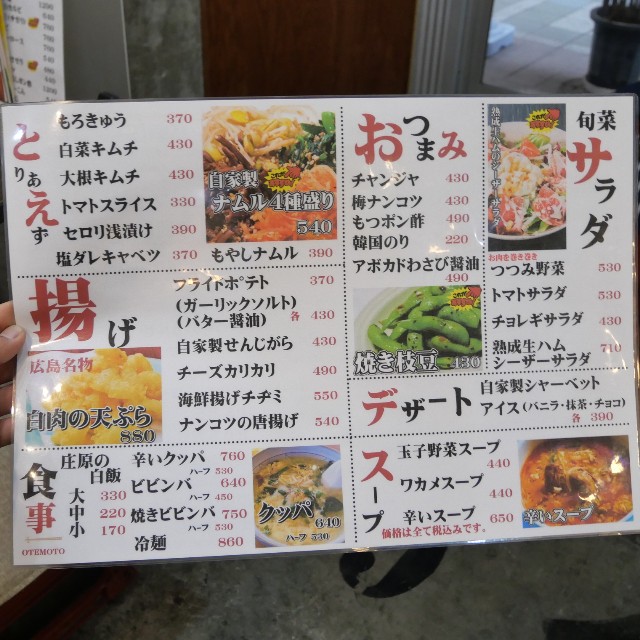 とりあえず
もろきゅう 370
白菜キムチ 430
大根キムチ 430
トマトスライス 330
セロリ浅漬け 390
塩ダレキャベツ 370
自家製
ナムル4種盛り
540
もやしナムル 390
おつまみ
チャンジャ 430
梅ナンコツ 430
もつポン酢 490
韓国のり 220
アボカドわさび醤油
490
焼き枝豆 430
旬菜
サラダ
熟成生ハムのシーザーサラダ
お肉を巻き巻き
つつみ野菜 530
トマトサラダ 530
チョレギサラダ 430
熟成生ハム
シーザーサラダ 710
揚げ
広島名物
白肉の天ぷら
880
フライドポテト 370
(ガーリックソルト)
(バター醤油) 各 430
自家製せんじがら 430
チーズカリカリ 490
海鮮揚げチヂミ 550
ナンコツの唐揚げ 540
デザート
自家製シャーベット
アイス(バニラ・抹茶・チョコ)
各 390
食事
OTEMOTO
庄原の
白飯
大 330
中 220
小 170
辛いクッパ 760
ハーフ 530
ビビンバ 640
ハーフ 450
焼きビビンバ 750
ハーフ 530
冷麺 860
クッパ
640
ハーフ 530
スープ
玉子野菜スープ
440
ワカメスープ
440
辛いスープ 650
価格は全て税込みです。
辛いスープ